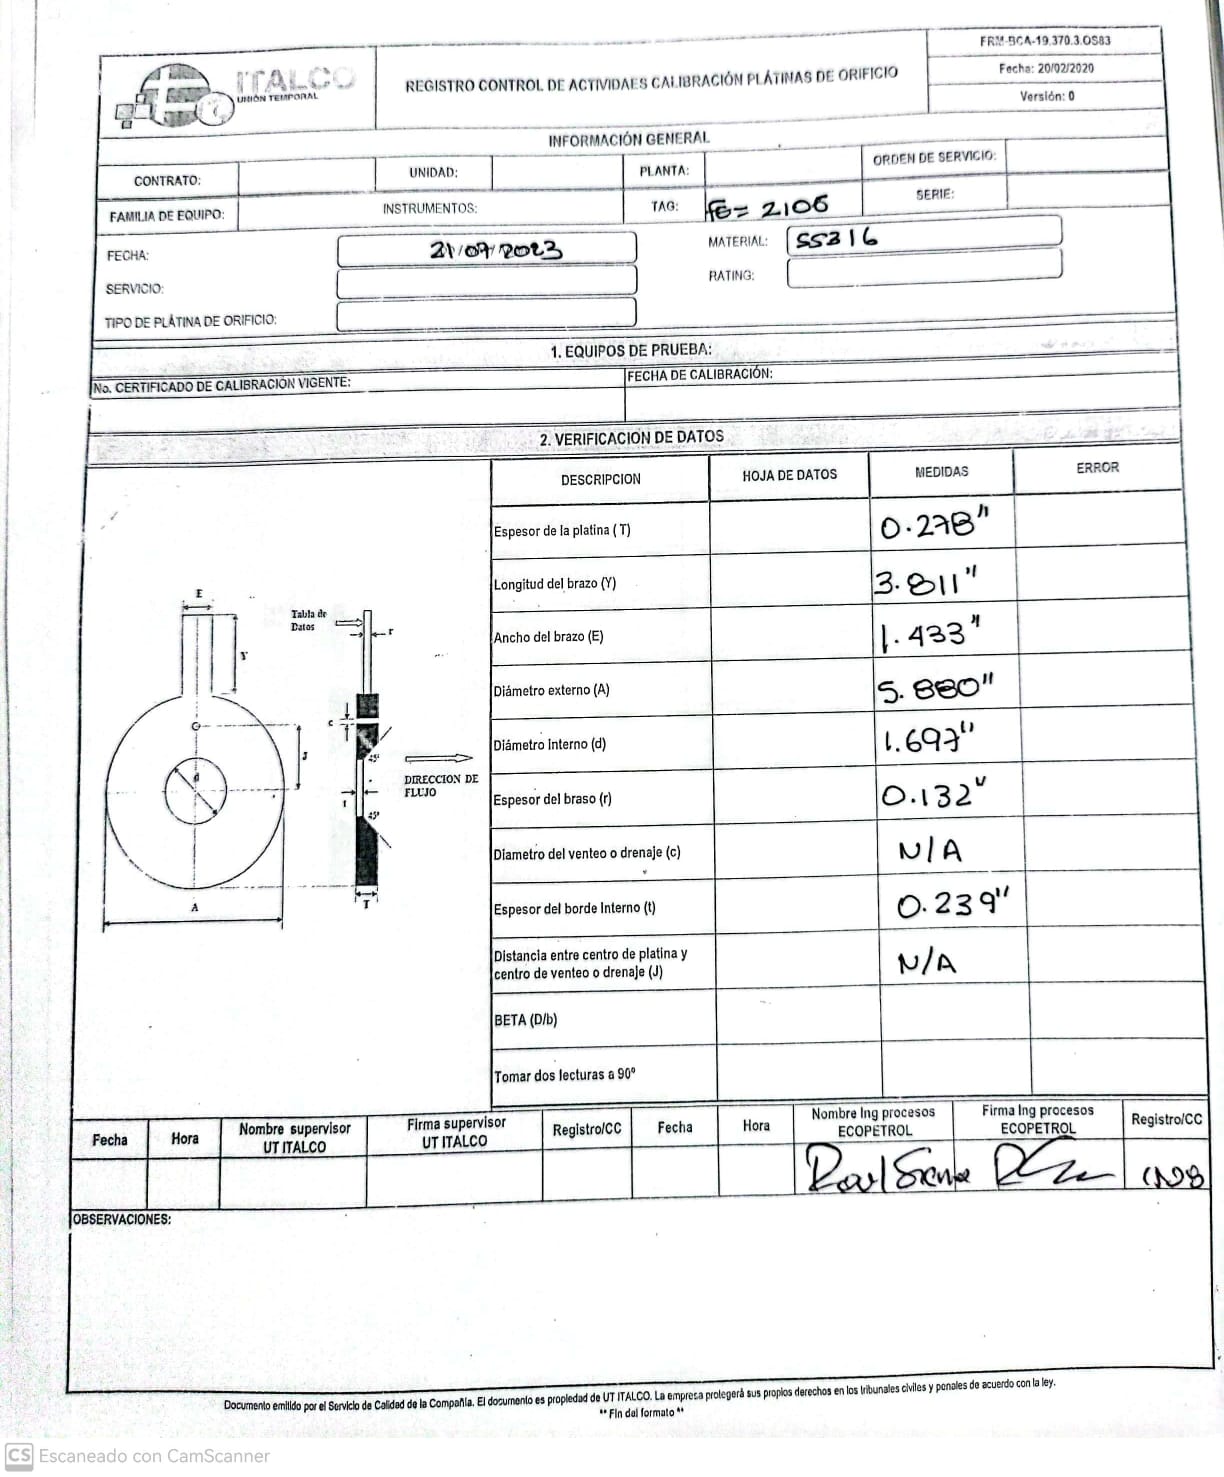 FRM-BCA-19.370.3.OS83
ITALCO
UNIÓN TEMPORAL
REGISTRO CONTROL DE ACTIVIDAES CALIBRACIÓN PLÁTINAS DE ORIFICIO
Fecha: 20/02/2020
Versión: 0
INFORMACIÓN GENERAL
CONTRATO:
UNIDAD:
PLANTA:
ORDEN DE SERVICIO:
FAMILIA DE EQUIPO:
INSTRUMENTOS:
TAG: FE= 2106
SERIE:
FECHA: 21/07/2023
MATERIAL: SS316
SERVICIO:
RATING:
TIPO DE PLÁTINA DE ORIFICIO:
1. EQUIPOS DE PRUEBA:
No. CERTIFICADO DE CALIBRACIÓN VIGENTE:
FECHA DE CALIBRACIÓN:
2. VERIFICACION DE DATOS
DESCRIPCION HOJA DE DATOS MEDIDAS ERROR
Espesor de la platina ( T) 0.278"
Longitud del brazo (Y) 3.811"
Ancho del brazo (E) 1.433"
Diámetro externo (A) 5.880"
Diámetro Interno (d) 1.697"
Espesor del braso (r) 0.132"
Diametro del venteo o drenaje (c) N/A
Espesor del borde Interno (t) 0.239"
Distancia entre centro de platina y
centro de venteo o drenaje (J) N/A
BETA (D/b)
Tomar dos lecturas a 90º
E
Y
Tabla de
Datos
r
c
J
d
45º
DIRECCION DE
FLUJO
t
45º
A
T
Fecha
Hora
Nombre supervisor
UT ITALCO
Firma supervisor
UT ITALCO
Registro/CC
Fecha
Hora
Nombre Ing procesos
ECOPETROL
Firma Ing procesos
ECOPETROL
Registro/CC
OBSERVACIONES:
Documento emitido por el Servicio de Calidad de la Compañía. El documento es propiedad de UT ITALCO. La empresa protegerá sus propios derechos en los tribunales civiles y penales de acuerdo con la ley.
** Fin del formato **
CS Escaneado con CamScanner